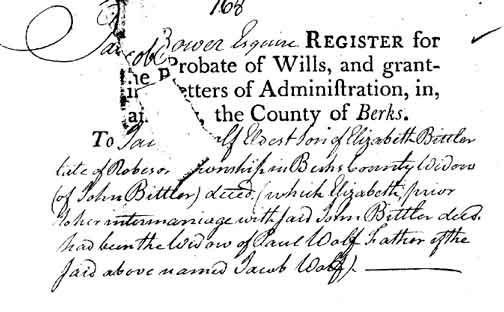 168
Jacob Bower Esquire REGISTER for
the Probate of Wills, and grant-
ing Letters of Administration, in,
and , the County of Berks.
To Jac olf Eldest Son of Elizabeth Bittler
late of Robeson Township in Berks County Widow
(of John Bittler) deced. (which Elizabeth, prior
to her intermarriage with said John Bittler deced.
had been the Widow of Paul Wolf Father of the
said above named Jacob Wolf).